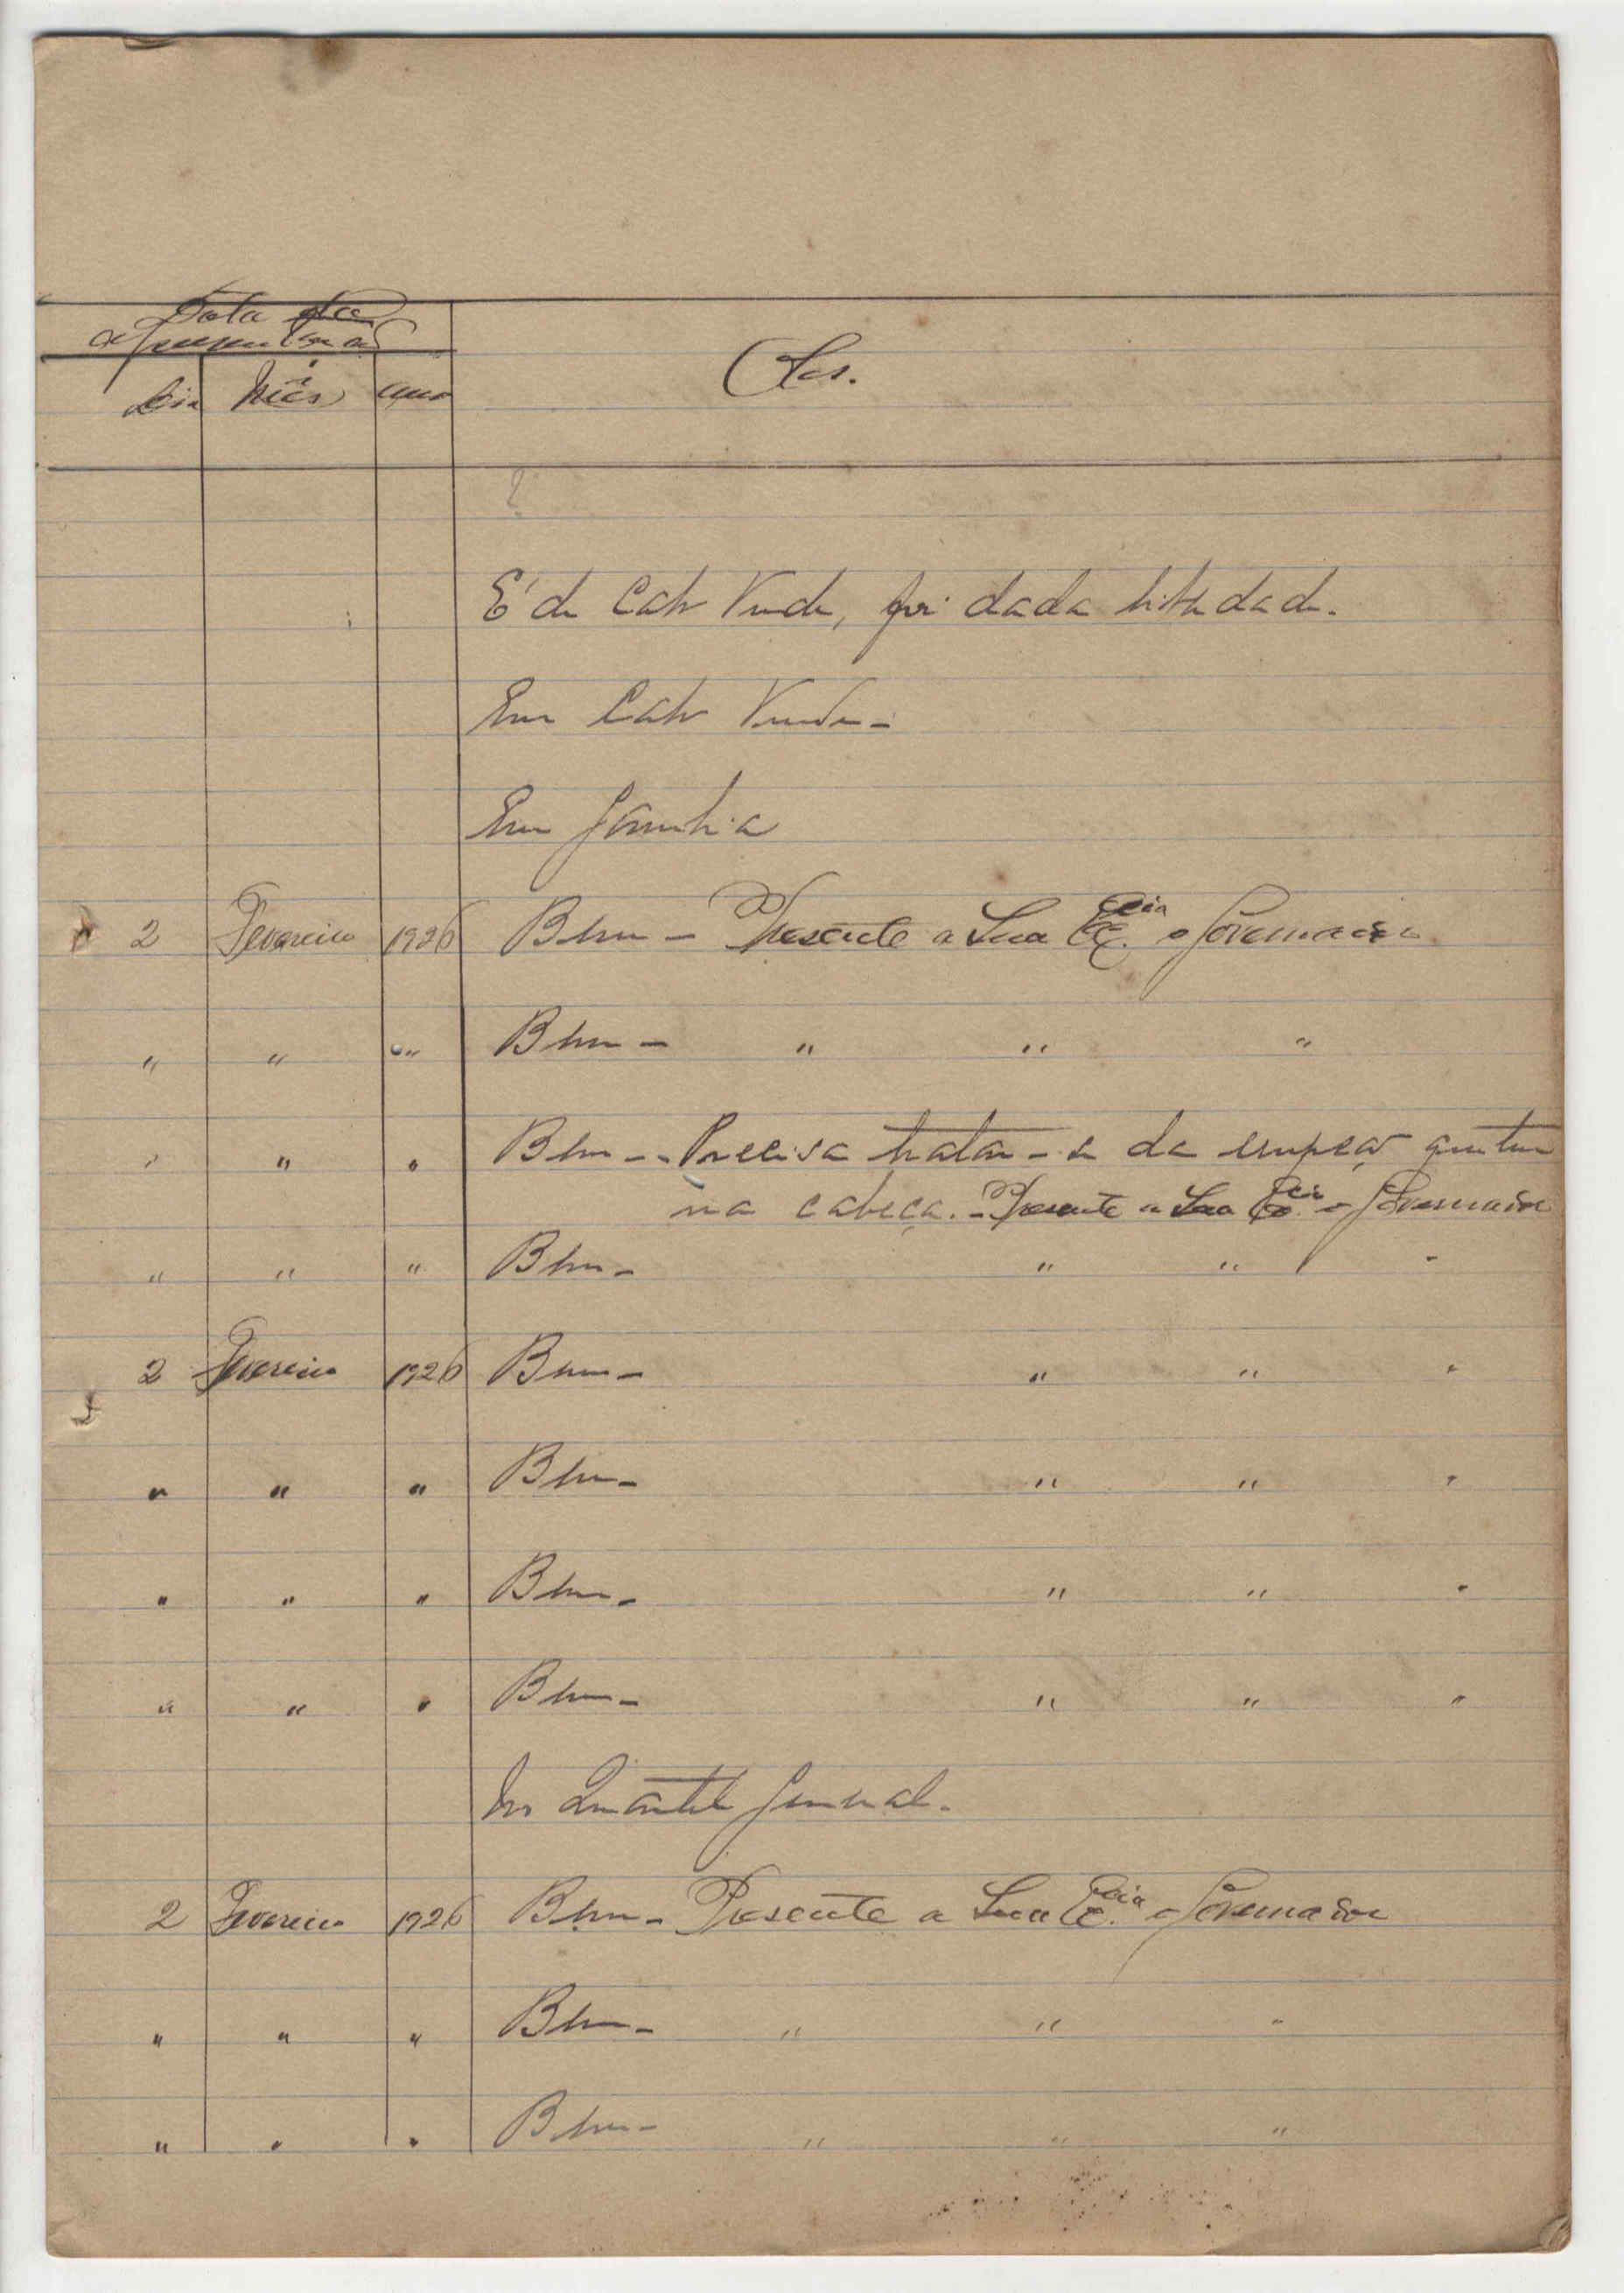 Data da
apresentação
Dia Mês ano Obs.
?
É de Cabo Verde, foi dada liberdade.
Em Cabo Verde -
Em família
2 Fevereiro 1926 Bem - Presente a Sua Exª.cia o Governador
" " " Bem - " " "
" " " Bem - Precisa tratar-se da erupção que tem
na cabeça. - Presente a Sua Exª.cia o Governador
" " " Bem - " " "
2 Fevereiro 1926 Bem - " " "
" " " Bem - " " "
" " " Bem - " " "
" " " Bem - " " "
No Quartel General.
2 Fevereiro 1926 Bem - Presente a Sua Exª.cia o Governador
" " " Bem - " " "
" " " Bem - " " "